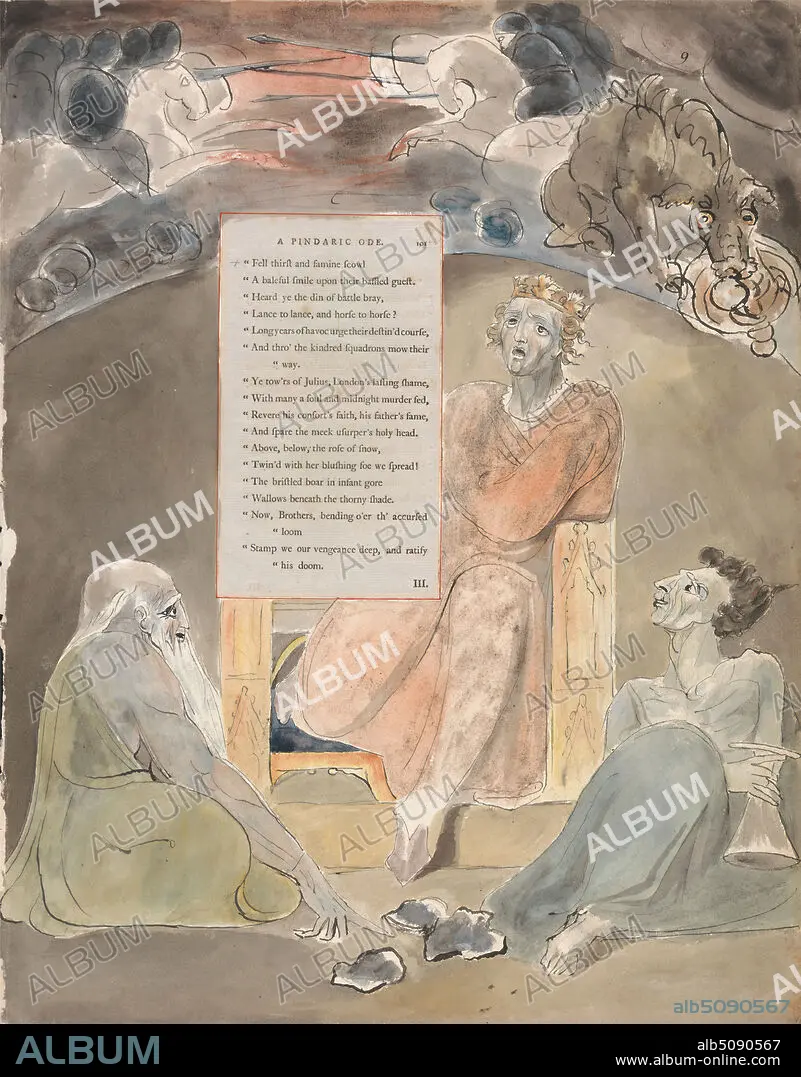 9
A PINDARIC ODE. 101
+ “ Fell thirſt and famine ſcowl
“ A baleful ſmile upon their baffled gueſt.
“ Heard ye the din of battle bray,
“ Lance to lance, and horſe to horſe ?
“ Long years of havoc urge their deſtin'd courſe,
“ And thro' the kindred ſquadrons mow their
“ way.
“ Ye tow'rs of Julius, London's laſting ſhame,
“ With many a foul and midnight murder fed,
“ Revere his conſort's faith, his father's fame,
“ And ſpare the meek uſurper's holy head.
“ Above, below, the roſe of ſnow,
“ Twin'd with her bluſhing foe we ſpread !
“ The briſtled boar in infant gore
“ Wallows beneath the thorny ſhade.
“ Now, Brothers, bending o'er th' accurſed
“ loom
“ Stamp we our vengeance deep, and ratify
“ his doom.
III.
ALBUM
alb5090567
ALBUM
alb5090567
www.album-online.com